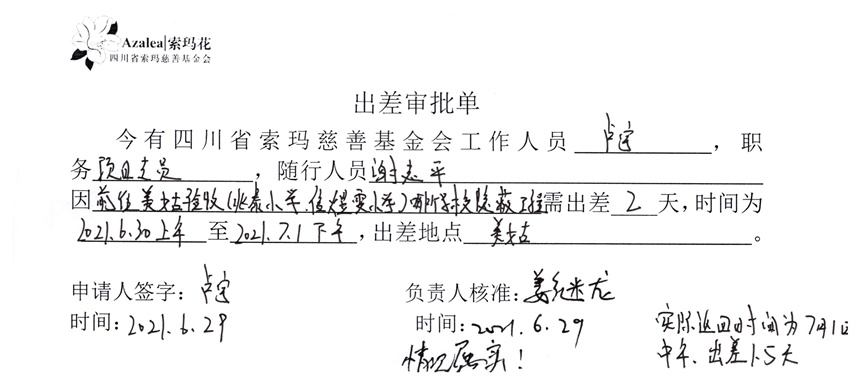 Azalea|索玛花
四川省索玛慈善基金会
出差审批单
今有四川省索玛慈善基金会工作人员 卢宇 ，职
务 项目专员 ，随行人员 谢志平
因 前往美姑验收(兆泰小学、佳煜小学)两所学校隐蔽工程 需出差 2 天，时间为
2021.6.30上午 至 2021.7.1下午 ，出差地点 美姑 。
申请人签字： 卢宇 负责人核准： 姜 龙
时间：2021.6.29 时间：2021.6.29
情况属实！
实际返回时间为7月1日
中午、出差1.5天